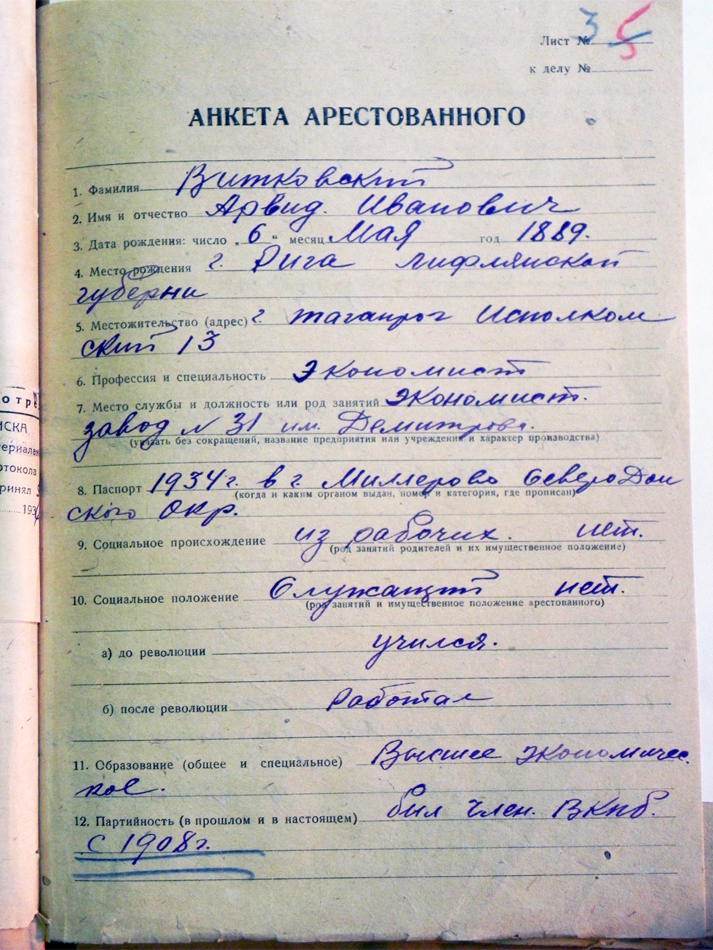 Лист № 3 5
к делу №
АНКЕТА АРЕСТОВАННОГО
1. Фамилия Витковский
2. Имя и отчество Арвид. Иванович
3. Дата рождения: число „6“ месяц Мая год 1889.
4. Место рождения г. Рига Лифлянской
губерни
5. Местожительство (адрес) г. Таганрог Исполком
ский 13
6. Профессия и специальность Экономист
7. Место службы и должность или род занятий Экономист.
завод N 31 им. Демитрова.
(указать без сокращений, название предприятия или учреждения и характер производства)
8. Паспорт 1934 г. в г. Миллерово СевероДон
(когда и каким органом выдан, номер и категория, где прописан)
ского Окр.
9. Социальное происхождение из рабочих. нет.
(род занятий родителей и их имущественное положение)
10. Социальное положение Служащий нет.
(род занятий и имущественное положение арестованного)
а) до революции учился.
б) после революции работал
11. Образование (общее и специальное) Высшее экономичес
кое.
12. Партийность (в прошлом и в настоящем) был член. ВКПб.
с 1908 г.
отре
ИСКА
отокола
ринял
193